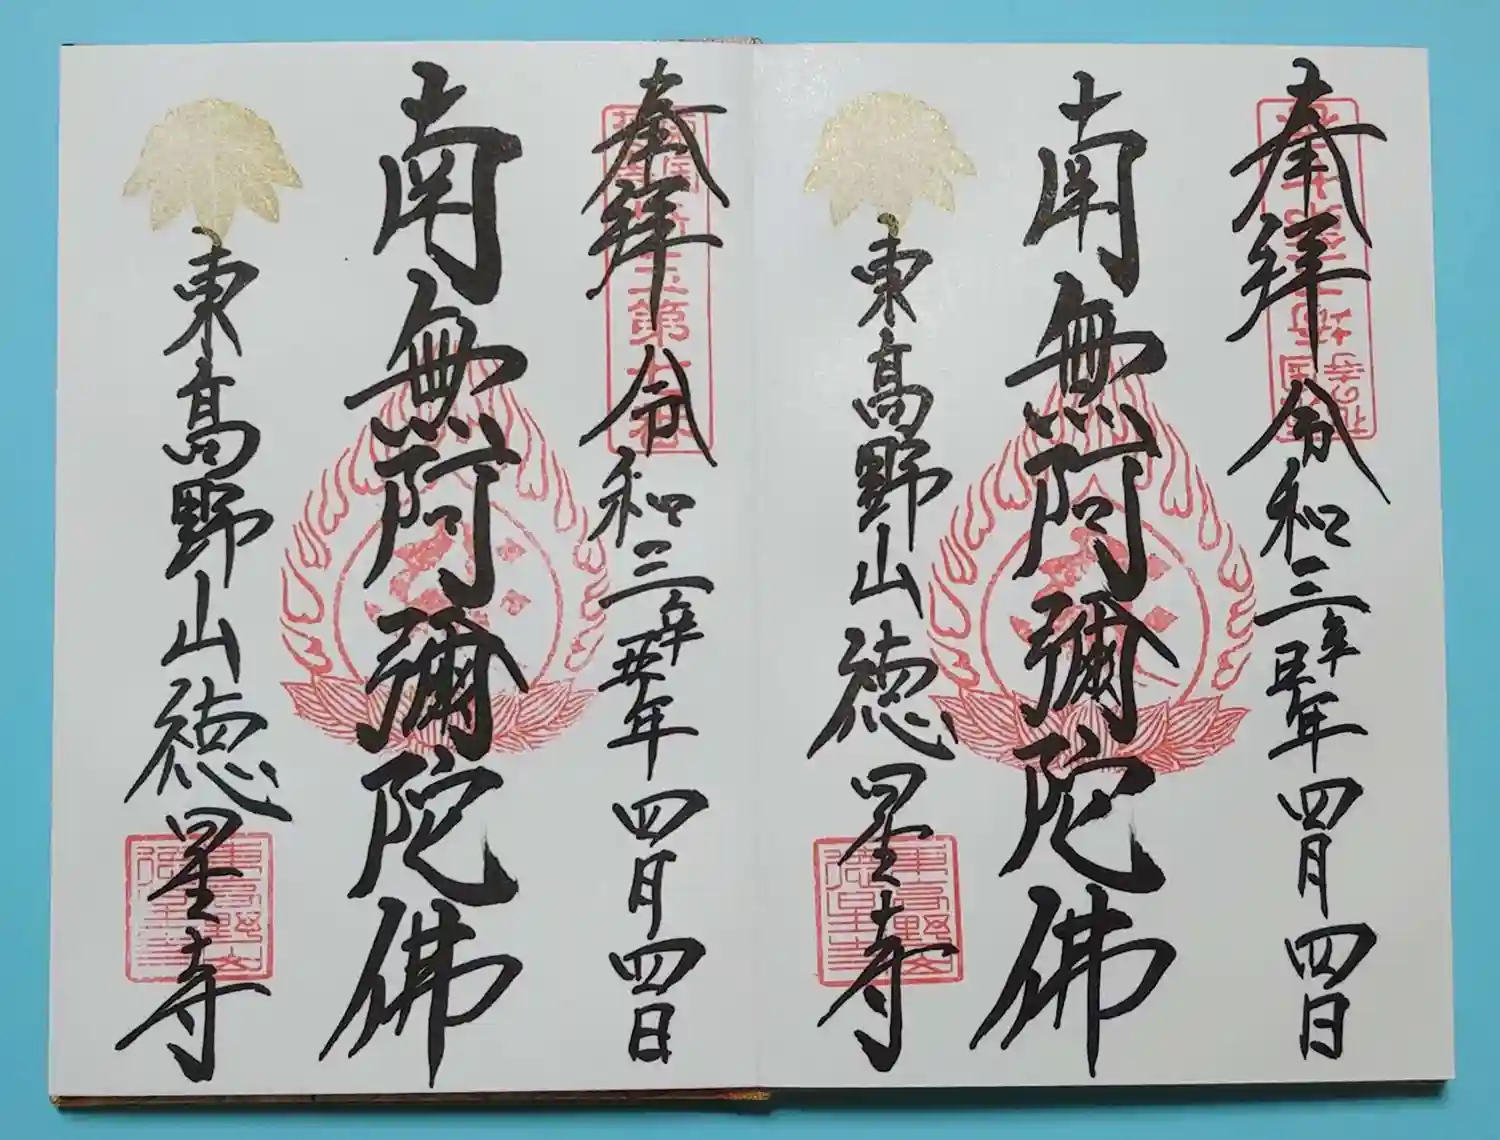 奉拝 令和三辛丑年四月四日
南無阿彌陀佛
東高野山徳星寺
東高野山
徳星寺
奉拝 令和三辛丑年四月四日
南無阿彌陀佛
東高野山徳星寺
東高野山
徳星寺